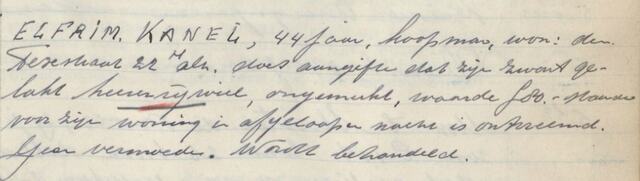 ELFRIM. KANEL, 44 jaar, koopman, won: den
Texestraat 22 II alh. doet aangifte dat zijn zwart ge-
lakt heerenrijwiel, ongemerkt, waarde f80.- staande
voor zijn woning in afgeloopen nacht is ontvreemd.
Geen vermoeden. Wordt behandeld.